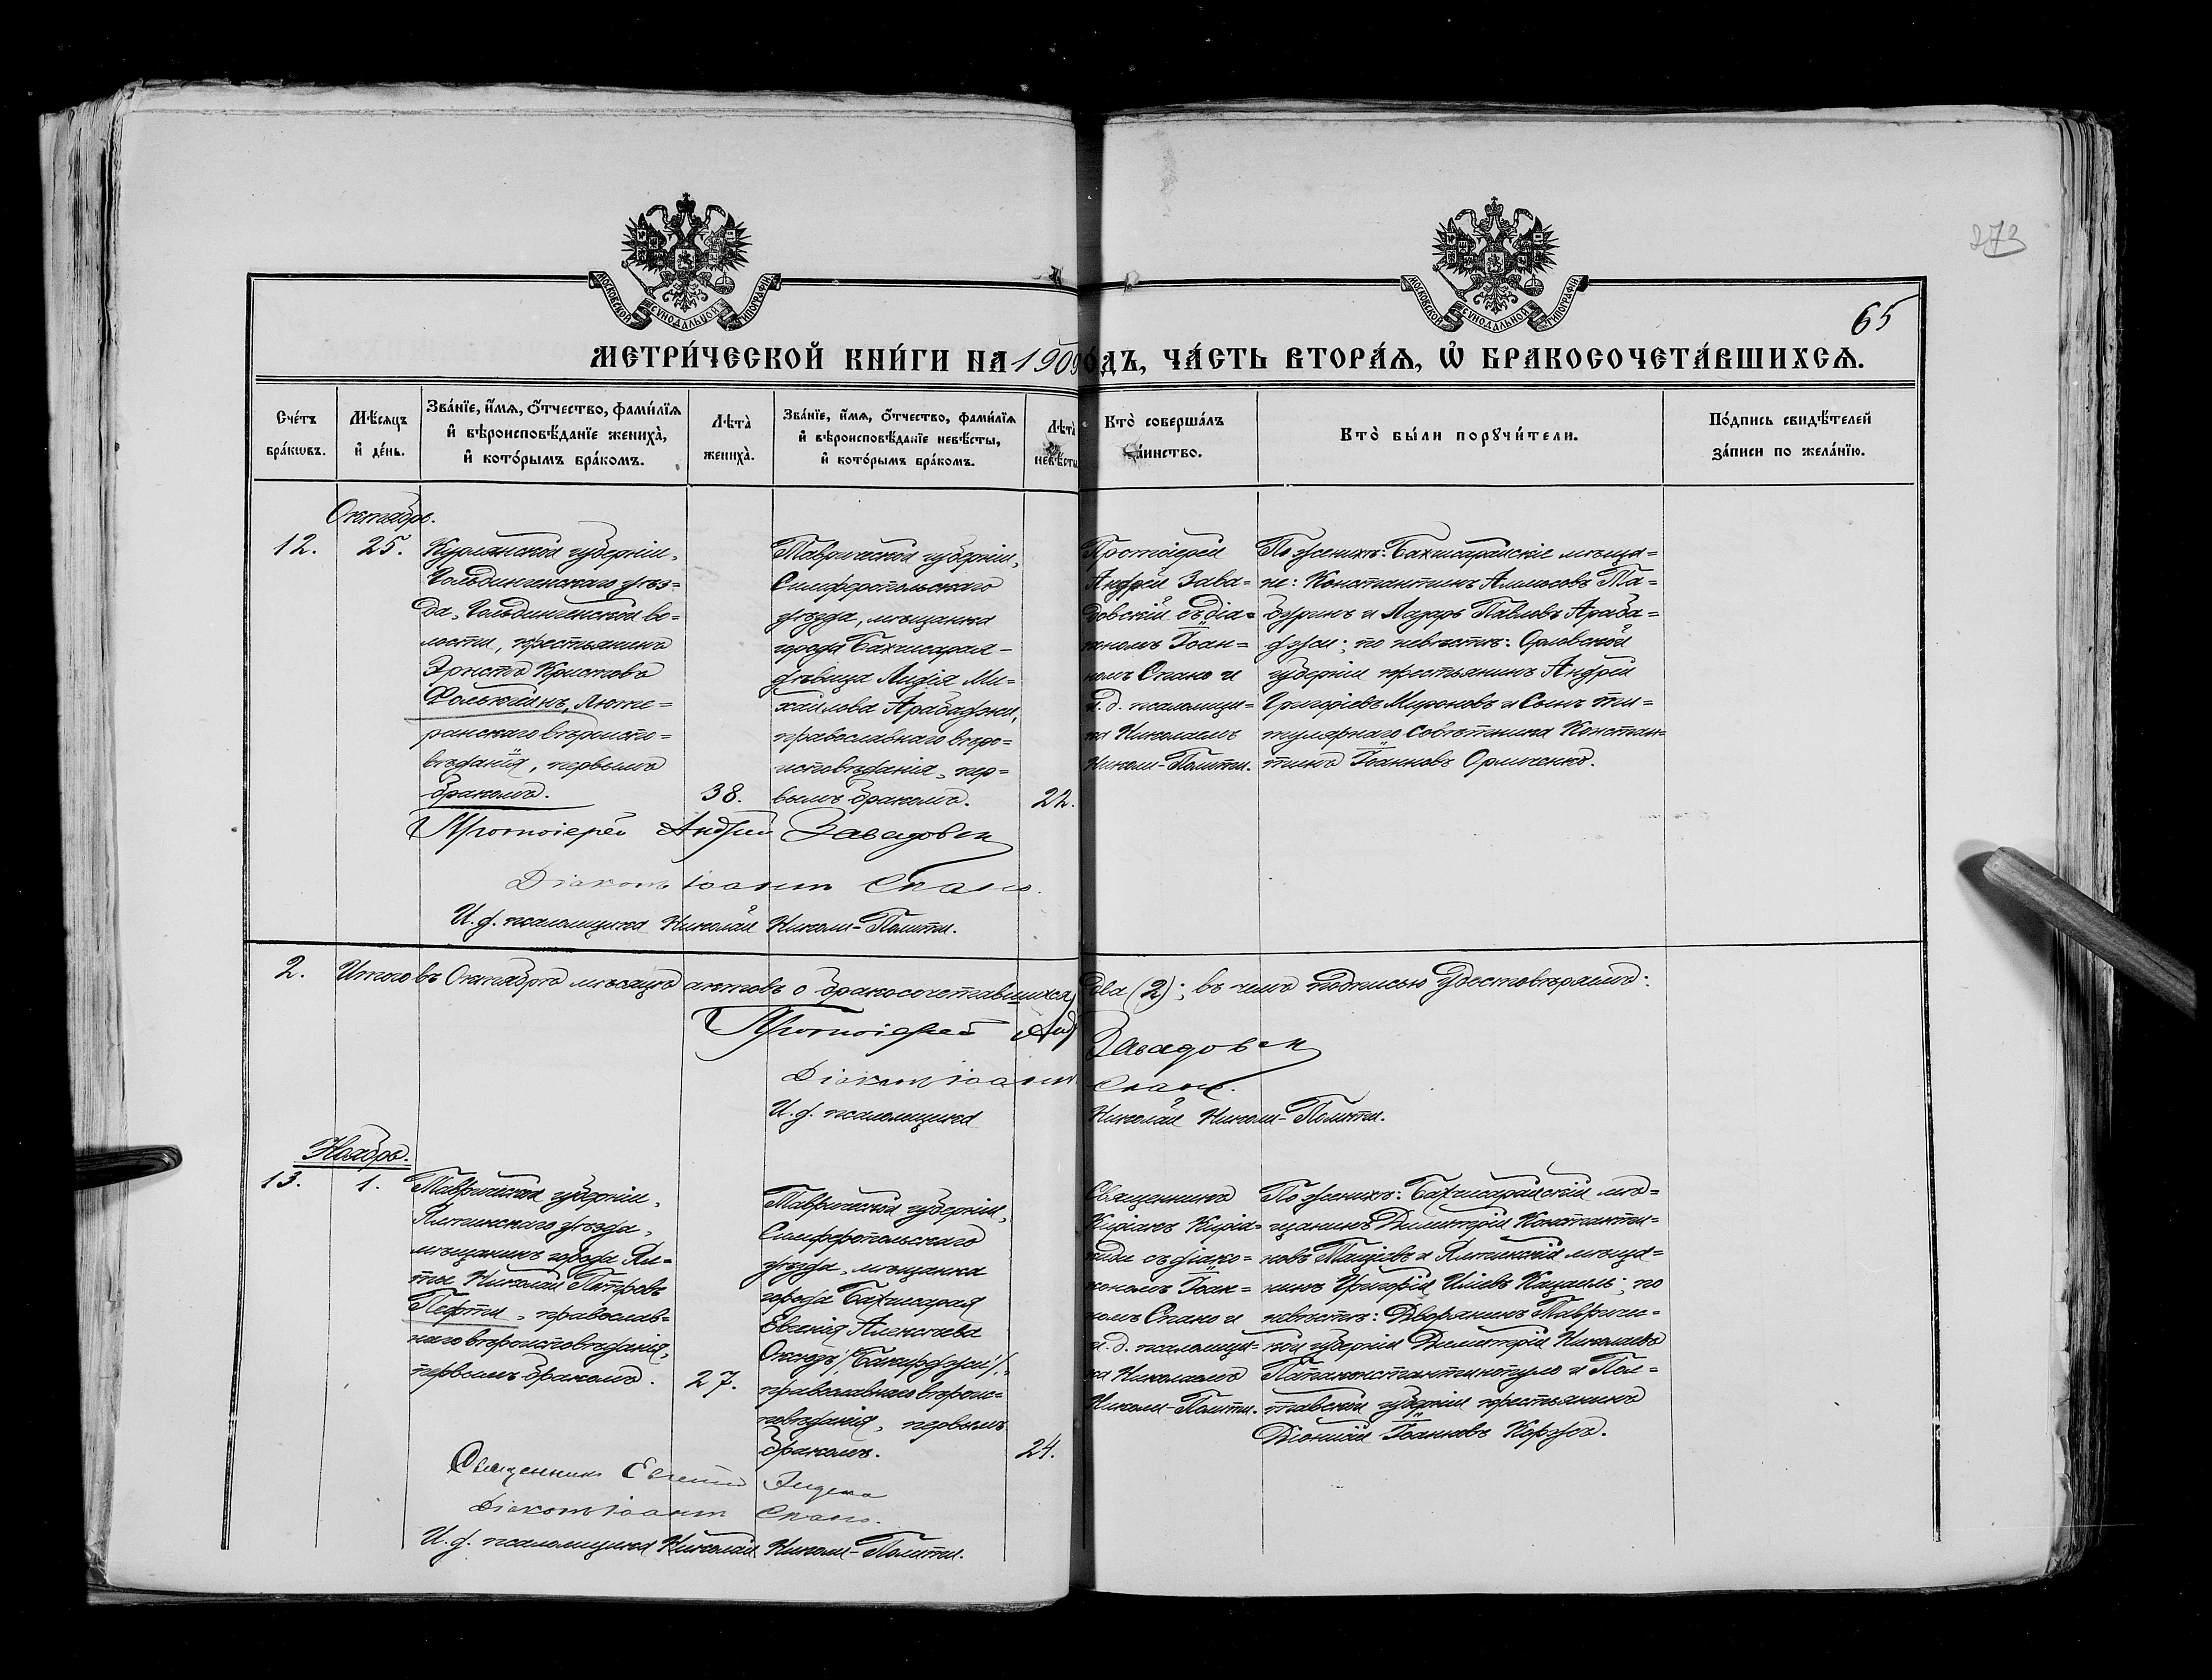 273
65
МОСКОВСКОЙ СѴНОДАЛЬНОЙ ТИПОГРАФІИ
МОСКОВСКОЙ СѴНОДАЛЬНОЙ ТИПОГРАФІИ
МЕТРИ́ЧЕСКОЙ КНИ́ГИ НА 1909 ГО́ДЪ, ЧА́СТЬ ВТОРА́Ѧ, Ѡ БРАКОСОЧЕТА́ВШИХСѦ.
Сче́тъ
бра́кѡвъ.
Мѣ́сѧцъ
и҆ де́нь.
Зва́нїе, и҆́мѧ, ѻ҆́тчество, фами́лїѧ
и҆ вѣроисповѣ́данїе жениха̀,
и҆ кото́рымъ бра́комъ.
Лѣта̀
жениха̀.
Зва́нїе, и҆́мѧ, ѻ҆́тчество, фами́лїѧ
и҆ вѣроисповѣ́данїе невѣ́сты,
и҆ кото́рымъ бра́комъ.
Лѣта̀
невѣ́сты
Кто̀ соверша́лъ
та́инство.
Кто̀ бы́ли порꙋчи́тели.
По́дпись свидѣ́телей
за́писи по жела́нїю.
Октябрь.
12.
25.
Курляндской губерніи,
Гольдингенскаго уѣз-
да, Гольдингенской во-
лости, крестьянинъ
Эрнстъ Кристовъ
Фолькманъ, люте-
ранскаго вѣроиспо-
вѣданія, первымъ
бракомъ.
38.
Таврической губерніи,
Симферопольскаго
уѣзда, мѣщанка
города Бахчисарая -
дѣвица Лидія Ми-
хаилова Арабаджи,
православнаго вѣро-
исповѣданія, пер-
вымъ бракомъ.
22.
Протоіерей
Андрей Зава-
довскій съ діа-
кономъ Іоан-
номъ Спано и
и.д. псаломщи-
ка Николаемъ
Николи-Политти.
По женихѣ: Бахчисарайскіе мѣща-
не: Константинъ
и Лазарь Павловъ Араба-
джи; по невѣстѣ: Орловской
губерніи крестьянинъ Андрей
Григоріевъ Мироновъ и Сынъ ти-
тулярнаго Совѣтника Констан-
тинъ Іоанновъ Орличенко.
Протоіерей Андрей Завадовскій
Діаконъ Іоаннъ Спано.
И.д. псаломщика Николай Николи-Политти.
2. Итого въ Октябрѣ мѣсяцѣ актовъ о бракосочетавшихся два (2); въ чемъ подписью удостовѣряемъ:
Протоіерей Анд Завадовскій
Діаконъ Іоаннъ Спано.
И.д. псаломщика Николай Николи-Политти.
Ноябрь.
13.
1.
Таврической губерніи,
Ялтинскаго уѣзда,
мѣщанинъ города Ял-
ты Николай Петровъ
православ-
наго вѣроисповѣданія,
первымъ бракомъ.
27.
Таврической губерніи,
Симферопольскаго
уѣзда, мѣщанка
города Бахчисарая
Евгенія Алексѣева
православнаго вѣроис-
повѣданія, первымъ
бракомъ.
24.
Священникъ
съ діако-
кономъ Іоан-
номъ Спано и
и.д. псаломщи-
ка Николаемъ
Николи-Политти.
По женихѣ: Бахчисарайскій мѣ-
щанинъ Димитрій Константи-
новъ и Ялтинскій мѣща-
нинъ Григорій Иліевъ по
невѣстѣ: Дворянинъ Тавриче-
кой губерніи Димитрій Николаевъ
Папаконстантинопуло и Пол-
тавской губерніи крестьянинъ
Діонисій Іоанновъ Коржъ.
Священникъ
Діаконъ Іоаннъ Спано.
И.д. псаломщика Николай Николи-Политти.